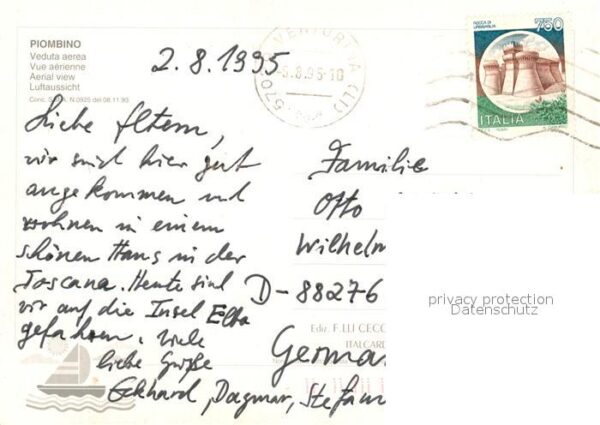 PIOMBINO
Veduta aerea
Vue aérienne
Aerial view
Luftaussicht
2.8.1995
VENTURINA (LI)
-5.8.95-10
ROCCA DI
URBISAGLIA
750
ITALIA
Liebe Eltern,
wir sind hier gut
angekommen und
wohnen in einem
schönen Haus in der
Toscana. Heute sind
wir auf die Insel Elba
gefahren. Viele
liebe Grüße
Eckhard, Dagmar, Stefan
Familie
Otto
Wilhelm
D-88276
Ediz. F.LLI CECC
ITALCARD
German
privacy protection
Datenschutz